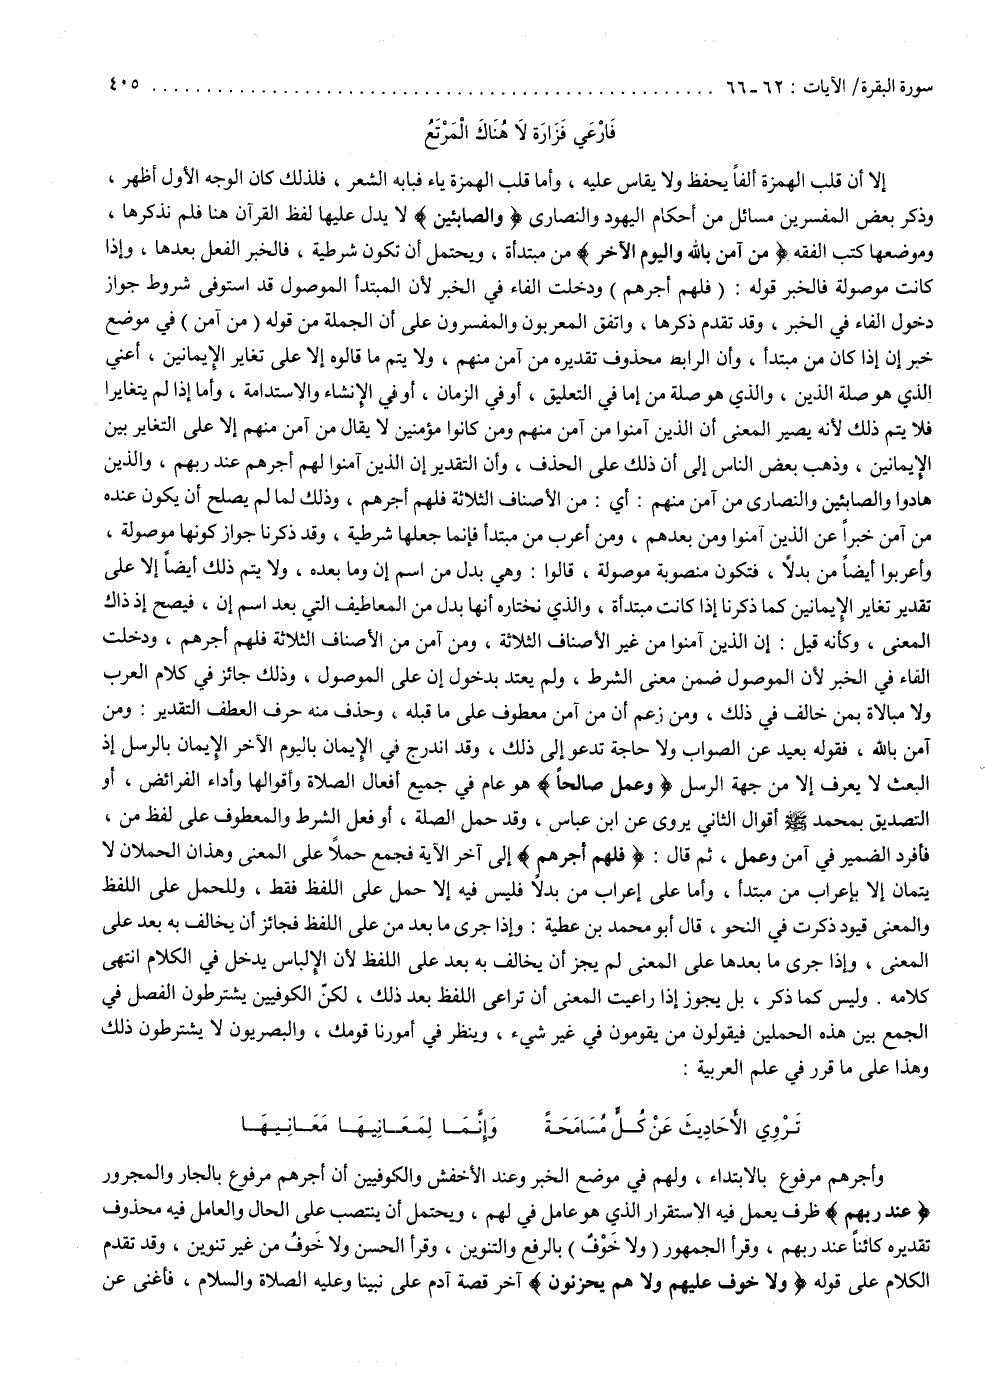 سورة البقرة/ الآيات : ٦٢ ـ ٦٦ ........................................................ ٤٠٥
فَارْعَي فَزَارَة لاَ هُنَاكَ الْمَرْتَعُ
إلا أن قلب الهمزة ألفاً يحفظ ولا يقاس عليه ، وأما قلب الهمزة ياء فبابه الشعر ، فلذلك كان الوجه الأول أظهر ،
وذكر بعض المفسرين مسائل من أحكام اليهود والنصارى ﴿ والصابئين ﴾ لا يدل عليها لفظ القرآن هنا فلم نذكرها ،
وموضعها كتب الفقه ﴿ من آمن بالله واليوم الآخر ﴾ من مبتدأة ، ويحتمل أن تكون شرطية ، فالخبر الفعل بعدها ، وإذا
كانت موصولة فالخبر قوله : ( فلهم أجرهم ) ودخلت الفاء في الخبر لأن المبتدأ الموصول قد استوفى شروط جواز
دخول الفاء في الخبر ، وقد تقدم ذكرها ، واتفق المعربون والمفسرون على أن الجملة من قوله ( من آمن ) في موضع
خبر إن إذا كان من مبتدأ ، وأن الرابط محذوف تقديره من آمن منهم ، ولا يتم ما قالوه إلا على تغاير الإيمانين ، أعني
الذي هو صلة الذين ، والذي هو صلة من إما في التعليق ، أو في الزمان ، أو في الإنشاء والاستدامة ، وأما إذا لم يتغايرا
فلا يتم ذلك لأنه يصير المعنى أن الذين آمنوا من آمن منهم ومن كانوا مؤمنين لا يقال من آمن منهم إلا على التغاير بين
الإيمانين ، وذهب بعض الناس إلى أن ذلك على الحذف ، وأن التقدير إن الذين آمنوا لهم أجرهم عند ربهم ، والذين
هادوا والصابئين والنصارى من آمن منهم : أي : من الأصناف الثلاثة فلهم أجرهم ، وذلك لما لم يصلح أن يكون عنده
من آمن خبراً عن الذين آمنوا ومن بعدهم ، ومن أعرب من مبتدأ فإنما جعلها شرطية ، وقد ذكرنا جواز كونها موصولة ،
وأعربوا أيضاً من بدلًا ، فتكون منصوبة موصولة ، قالوا : وهي بدل من اسم إن وما بعده ، ولا يتم ذلك أيضاً إلا على
تقدير تغاير الإيمانين كما ذكرنا إذا كانت مبتدأة ، والذي نختاره أنها بدل من المعاطيف التي بعد اسم إن ، فيصح إذ ذاك
المعنى ، وكأنه قيل : إن الذين آمنوا من غير الأصناف الثلاثة ، ومن آمن من الأصناف الثلاثة فلهم أجرهم ، ودخلت
الفاء في الخبر لأن الموصول ضمن معنى الشرط ، ولم يعتد بدخول إن على الموصول ، وذلك جائز في كلام العرب
ولا مبالاة بمن خالف في ذلك ، ومن زعم أن من آمن معطوف على ما قبله ، وحذف منه حرف العطف التقدير : ومن
آمن بالله ، فقوله بعيد عن الصواب ولا حاجة تدعو إلى ذلك ، وقد اندرج في الإيمان باليوم الآخر الإيمان بالرسل إذ
البعث لا يعرف إلا من جهة الرسل ﴿ وعمل صالحاً ﴾ هو عام في جميع أفعال الصلاة وأقوالها وأداء الفرائض ، أو
التصديق بمحمد ﷺ أقوال الثاني يروى عن ابن عباس ، وقد حمل الصلة ، أو فعل الشرط والمعطوف على لفظ من ،
فأفرد الضمير في آمن وعمل ، ثم قال : ﴿ فلهم أجرهم ﴾ إلى آخر الآية فجمع حملاً على المعنى وهذان الحملان لا
يتمان إلا بإعراب من مبتدأ ، وأما على إعراب من بدلًا فليس فيه إلا حمل على اللفظ فقط ، وللحمل على اللفظ
والمعنى قيود ذكرت في النحو ، قال أبو محمد بن عطية : وإذا جرى ما بعد من على اللفظ فجائز أن يخالف به بعد على
المعنى ، وإذا جرى ما بعدها على المعنى لم يجز أن يخالف به بعد على اللفظ لأن الإلباس يدخل في الكلام انتهى
كلامه . وليس كما ذكر ، بل يجوز إذا راعيت المعنى أن تراعى اللفظ بعد ذلك ، لكنّ الكوفيين يشترطون الفصل في
الجمع بين هذه الحملين فيقولون من يقومون في غير شيء ، وينظر في أمورنا قومك ، والبصريون لا يشترطون ذلك
وهذا على ما قرر في علم العربية :
تَرْوِي الأَحَادِيثَ عَنْ كُلٍّ مُسَامَحَةً وَإِنَّمَا لِمَعَانِيهَا مَعَانِيهَا
وأجرهم مرفوع بالابتداء ، ولهم في موضع الخبر وعند الأخفش والكوفيين أن أجرهم مرفوع بالجار والمجرور
﴿ عند ربهم ﴾ ظرف يعمل فيه الاستقرار الذي هو عامل في لهم ، ويحتمل أن ينتصب على الحال والعامل فيه محذوف
تقديره كائناً عند ربهم ، وقرأ الجمهور ( ولا خَوْفٌ ) بالرفع والتنوين ، وقرأ الحسن ولا خَوفُ من غير تنوين ، وقد تقدم
الكلام على قوله ﴿ ولا خوف عليهم ولا هم يحزنون ﴾ آخر قصة آدم على نبينا وعليه الصلاة والسلام ، فأغنى عن